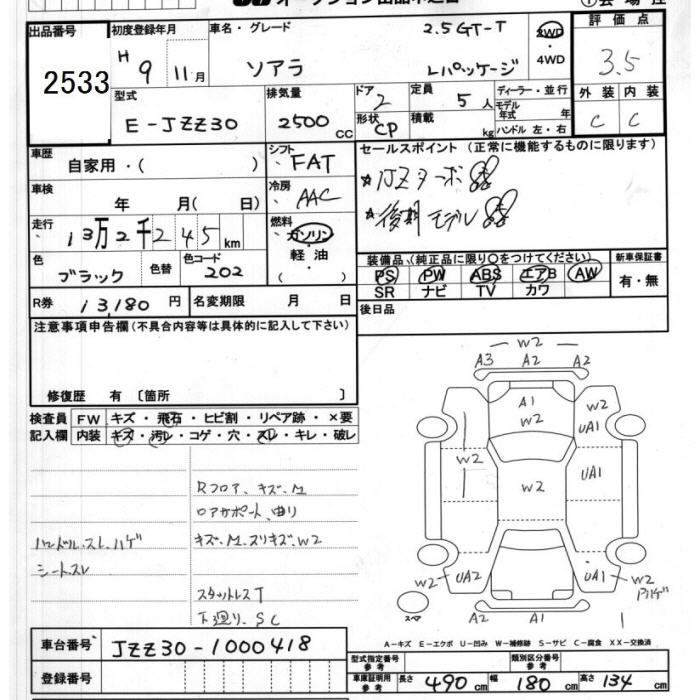 出品番号
2533
初度登録年月
H 9 11月
車名・グレード
ソアラ
2.5GT-T
Lパッケージ
2WD
・
4WD
評価点
3.5
外装 内装
C C
型式
E-JZZ30
排気量
2500 CC
ドア
2
形状
CP
定員 5 人
積載 kg
ディーラー・並行
モデル年式 年
ハンドル 左・右
車歴
自家用・( )
シフト
FAT
車検
年 月( 日)
冷房
AAC
走行
13万2千245km
燃料
ガソリン
軽油
( )
色
ブラック
色替
色コード
202
R券 13,180 円
名変期限 月 日
セールスポイント (正常に機能するものに限ります)
★1JZターボ
★後期モデル
装備品 (純正品に限り○をつけてください)
PS PW ABS エアB AW
SR ナビ TV カワ
新車保証書
有・無
後日品
注意事項申告欄(不具合内容等は具体的に記入して下さい)
修復歴 有 〔箇所 〕
検査員記入欄
FW キズ・飛石・ヒビ割・リペア跡・×要
内装 キズ・汚レ・コゲ・穴・スレ・キレ・破レ
Rフロア、キズ、M
ロアサポート、曲リ
ハンドル、スレ、ハゲ
キズ、M、スリキズ、W2
シート、スレ
スタットレスT
下廻リ、SC
W2
A3 A2 A2
A1
W2
W2
UA1
W2
W2
UA1
W2 UA2
UA1 W2
A2 A1
スペア
A-キズ E-エクボ U-凹み W-補修跡 S-サビ C-腐食 XX-交換済
車台番号 JZZ30-1000418
登録番号
型式指定番号 参考
類別区分番号 参考
車庫証明用 参考 長さ 490 cm 幅 180 cm 高さ 134 cm